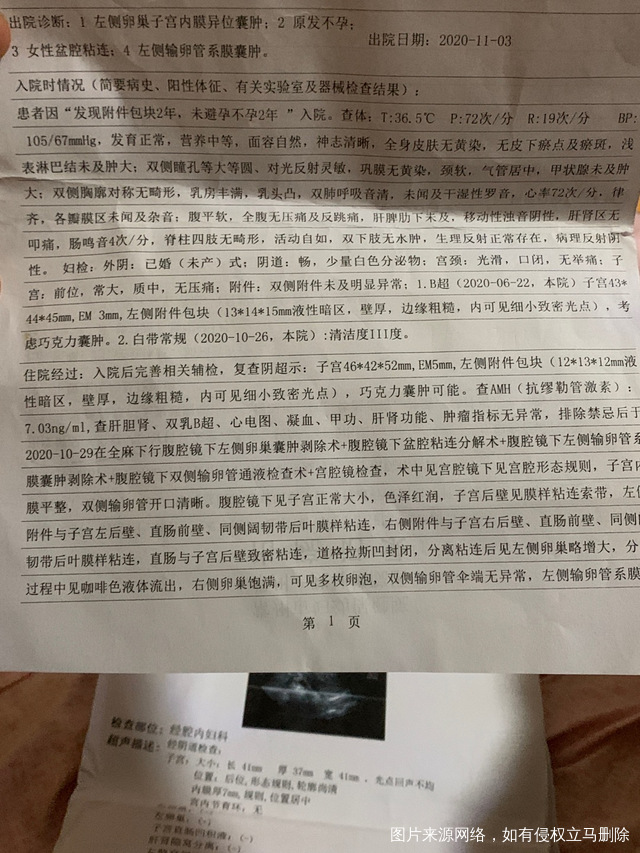 出院诊断：1 左侧卵巢子宫内膜异位囊肿；2 原发不孕；
3 女性盆腔粘连；4 左侧输卵管系膜囊肿。
出院日期：2020-11-03
入院时情况（简要病史、阳性体征、有关实验室及器械检查结果）：
患者因“发现附件包块2年，未避孕不孕2年 ”入院。查体：T:36.5℃ P:72次/分 R:19次/分 BP:
105/67mmHg，发育正常，营养中等，面容自然，神志清晰，全身皮肤无黄染，无皮下瘀点及瘀斑，浅
表淋巴结未及肿大；双侧瞳孔等大等圆、对光反射灵敏，巩膜无黄染，颈软，气管居中，甲状腺未及肿
大；双侧胸廓对称无畸形，乳房丰满，乳头凸，双肺呼吸音清，未闻及干湿性罗音，心率72次/分，律
齐，各瓣膜区未闻及杂音；腹平软，全腹无压痛及反跳痛，肝脾肋下未及，移动性浊音阴性，肝肾区无
叩痛，肠鸣音4次/分，脊柱四肢无畸形，活动自如，双下肢无水肿，生理反射正常存在，病理反射阴
性。 妇检：外阴：已婚（未产）式；阴道：畅，少量白色分泌物；宫颈：光滑，口闭，无举痛；子
宫：前位，常大，质中，无压痛；附件：双侧附件未及明显异常；1.B超（2020-06-22，本院）子宫43*
44*45mm,EM 3mm,左侧附件包块（13*14*15mm液性暗区，壁厚，边缘粗糙，内可见细小致密光点），考
虑巧克力囊肿。2.白带常规（2020-10-26，本院）:清洁度III度。
住院经过：入院后完善相关辅检，复查阴超示：子宫46*42*52mm,EM5mm,左侧附件包块（12*13*12mm液
性暗区，壁厚，边缘粗糙，内可见细小致密光点），巧克力囊肿可能。查AMH（抗缪勒管激素）：
7.03ng/ml,查肝胆肾、双乳B超、心电图、凝血、甲功、肝肾功能、肿瘤指标无异常，排除禁忌后于
2020-10-29在全麻下行腹腔镜下左侧卵巢囊肿剥除术+腹腔镜下盆腔粘连分解术+腹腔镜下左侧输卵管系
膜囊肿剥除术+腹腔镜下双侧输卵管通液检查术+宫腔镜检查，术中见宫腔镜下见宫腔形态规则，子宫内
膜平整，双侧输卵管开口清晰。腹腔镜下见子宫正常大小，色泽红润，子宫后壁见膜样粘连索带，左侧
附件与子宫左后壁、直肠前壁、同侧阔韧带后叶膜样粘连，右侧附件与子宫右后壁、直肠前壁、同侧
韧带后叶膜样粘连，直肠与子宫后壁致密粘连，道格拉斯凹封闭，分离粘连后见左侧卵巢略增大，分
过程中见咖啡色液体流出，右侧卵巢饱满，可见多枚卵泡，双侧输卵管伞端无异常，左侧输卵管系膜
第 1 页
检查部位：经腔内妇科
超声描述：经阴道检查：
子宫：大小：长 41mm 厚 37mm 宽 41mm ，光点回声不均
位置：后位，形态规则，轮廓尚清
内膜厚7mm，规则，位置居中
宫内节育环：无
左卵巢：(-)
子宫直肠凹积液：(-)
图片来源网络，如有侵权立马删除